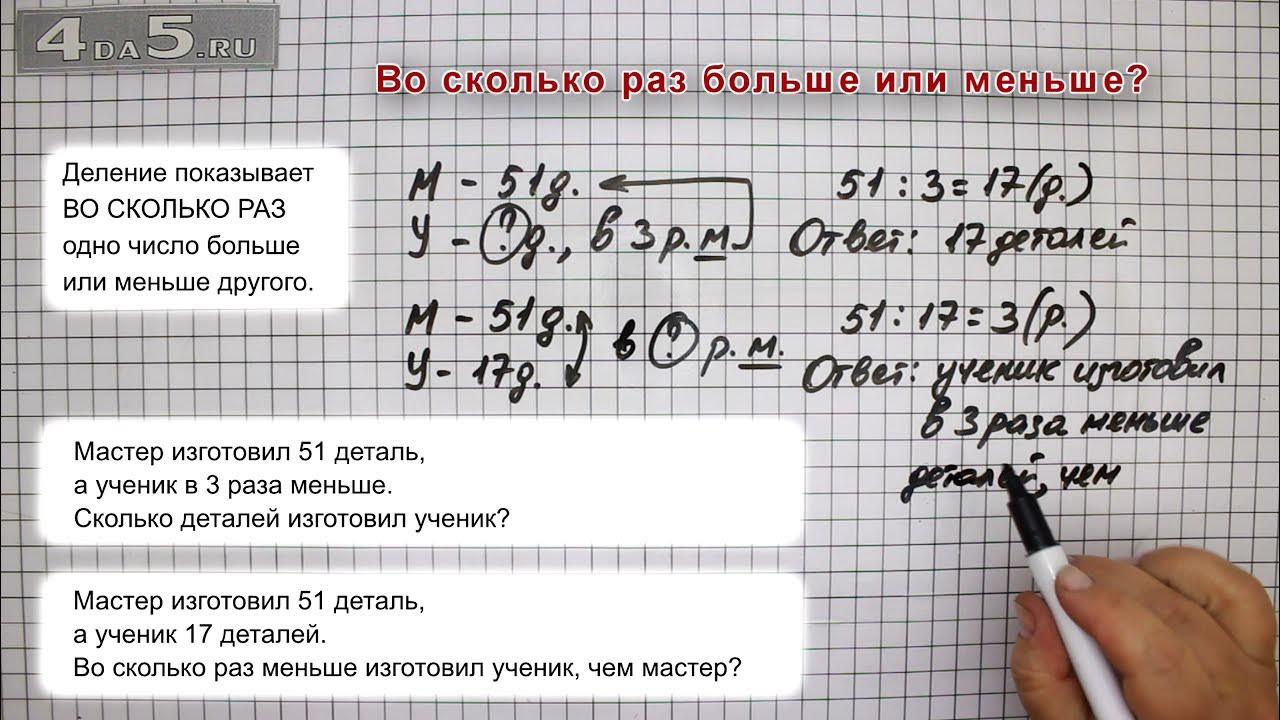 4DA5.RU
Во сколько раз больше или меньше?
Деление показывает
ВО СКОЛЬКО РАЗ
одно число больше
или меньше другого.
М - 51д.
У - ? д., в 3 р. м.
51 : 3 = 17 (д.)
Ответ: 17 деталей
М - 51д.
У - 17д.
в ? р. м.
51 : 17 = 3 (р.)
Ответ: ученик изготовил
в 3 раза меньше
деталей, чем
Мастер изготовил 51 деталь,
а ученик в 3 раза меньше.
Сколько деталей изготовил ученик?
Мастер изготовил 51 деталь,
а ученик 17 деталей.
Во сколько раз меньше изготовил ученик, чем мастер?